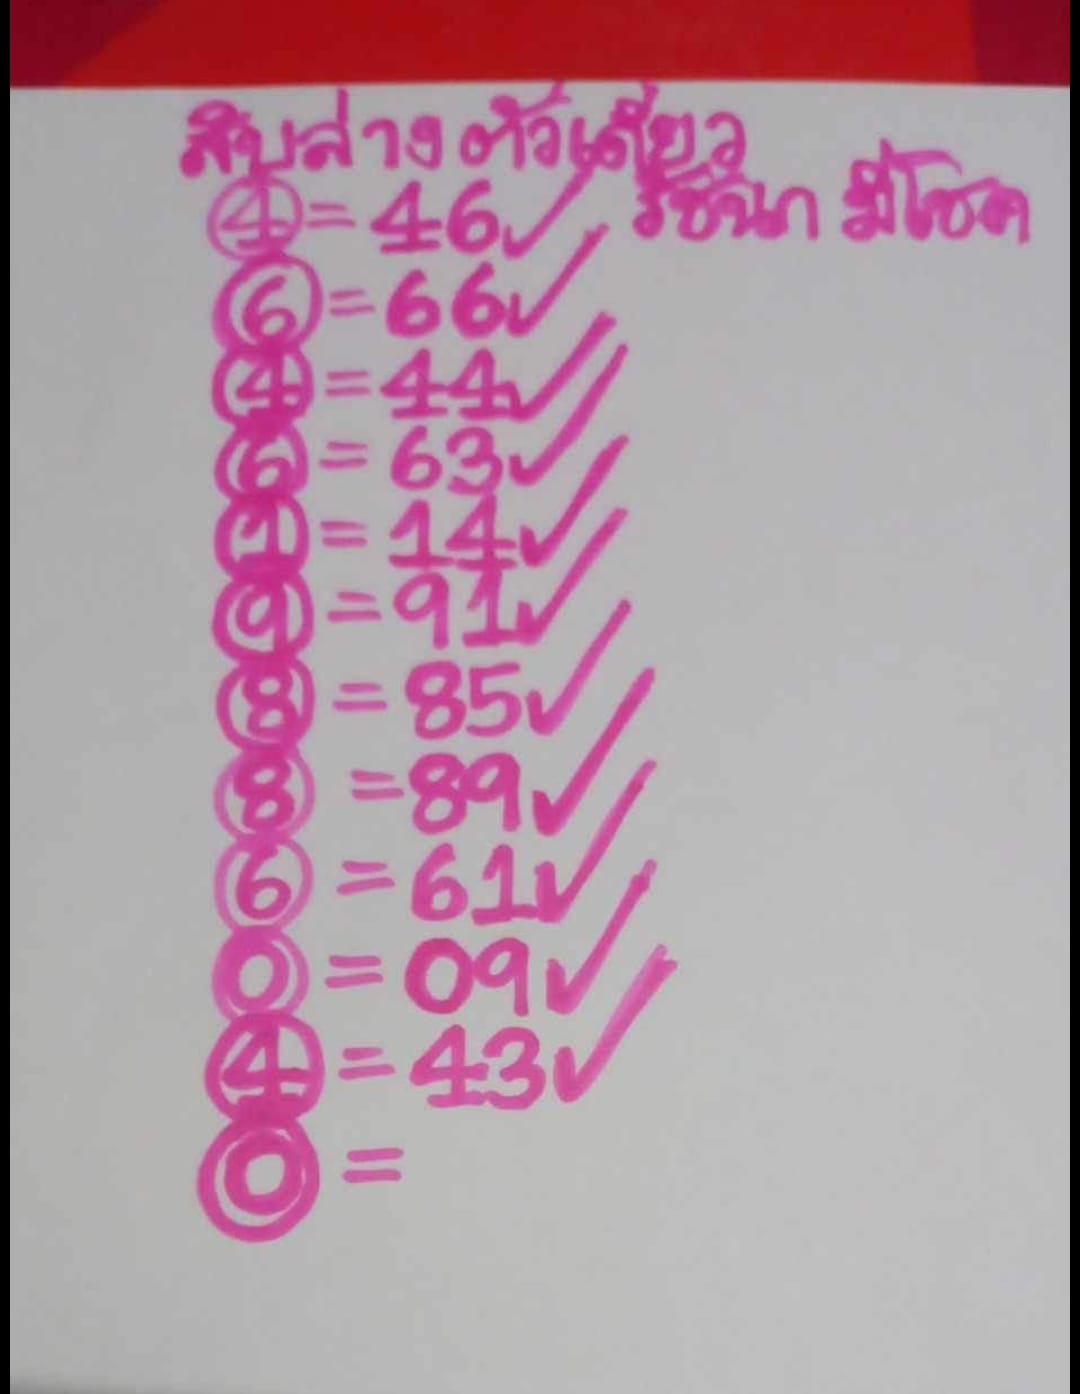 สิบล่าง ตัวเดียว
รัชนก มีโชค
④ = 46 ✓
⑥ = 66 ✓
④ = 44 ✓
⑥ = 63 ✓
① = 14 ✓
⑨ = 91 ✓
⑧ = 85 ✓
⑧ = 89 ✓
⑥ = 61 ✓
⓪ = 09 ✓
④ = 43 ✓
⓪ =